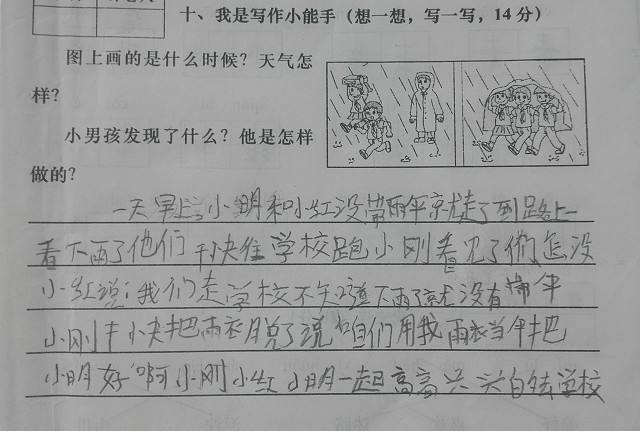 十、我是写作小能手（想一想，写一写，14分）
图上画的是什么时候？天气怎
样？
小男孩发现了什么？他是怎样
做的？
一天早上，小明和小红没带雨伞就走了到路上一
看下雨了他们 快往学校跑小刚看见了们怎没
小红说：我们走学校不知道下雨了就没有带伞
小刚 快把雨衣脱了说咱们用我雨衣当伞把
小明好啊小刚小红小明一起高高兴兴白 学校